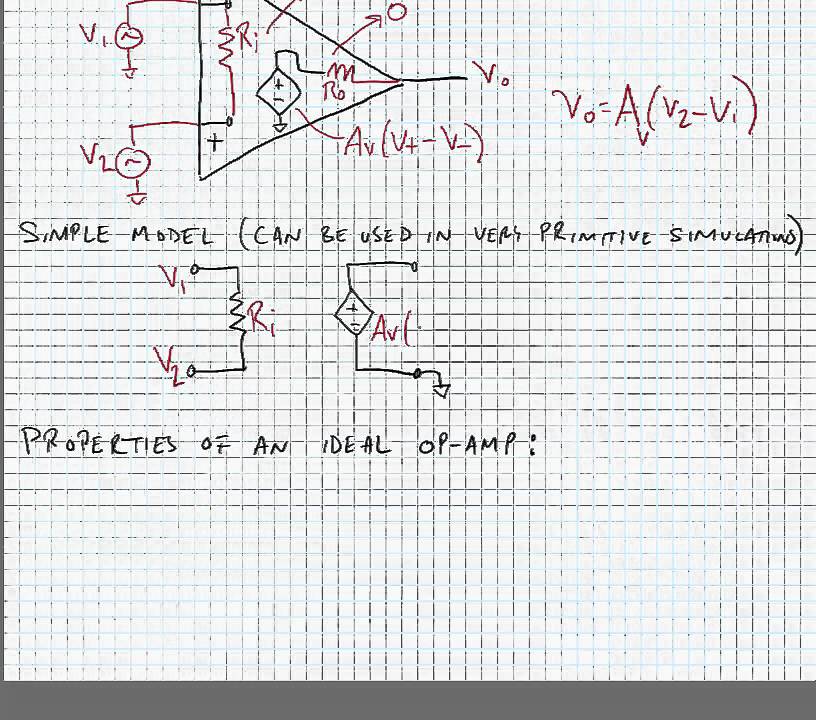 O
V1
Ri
Ro
Vo
Vo=Av(V2-V1)
V2
+
Av(V+-V-)
SIMPLE MODEL (CAN BE USED IN VERY PRIMITIVE SIMULATIONS)
V1
Ri
Av(
V2
PROPERTIES OF AN IDEAL OP-AMP: